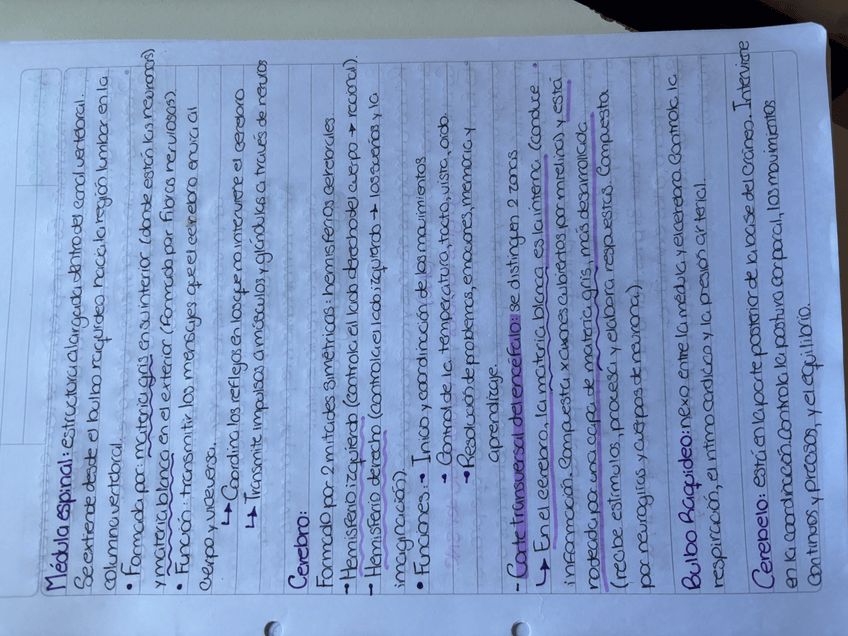 Médula espinal: estructura alargada dentro del canal vertebral.
Se extiende desde el bulbo raquídeo hacia la región lumbar en la
columna vertebral.
• Formado por: materia gris en su interior (donde están las neuronas)
y materia blanca en el exterior (Formada por fibras nerviosas)
• Función: transmitir los mensajes que el cerebro envía al
cuerpo, y viceversa.
↳ Coordina los reflejos en los que no interviene el cerebro
↳ Transmite impulsos a músculos y glándulas a través de nervios
Cerebro:
Formado por 2 mitades simétricas: hemisferios cerebrales.
→ Hemisferio izquierdo (controla el lado derecho del cuerpo → racional).
→ Hemisferio derecho (controla el lado izquierdo → los sueños y la
imaginación).
• Funciones: → Inicio y coordinación de los movimientos
→ Control de la temperatura, tacto, vista, oído.
→ Resolución de problemas, emociones, memoria y
aprendizaje.
- Corte transversal del encéfalo: se distinguen 2 zonas.
↳ En el cerebro, la materia blanca es la interna (conduce
información. Compuesta x axones cubiertos por mielina) y está
rodeada por una capa de materia gris, más desarrollada
(recibe estímulos, procesa y elabora respuestas. Compuesta
por neuroglias y cuerpos de neurona).
Bulbo Raquídeo: nexo entre la médula y el cerebro. Controla la
respiración, el ritmo cardíaco y la presión arterial.
Cerebelo: está en la parte posterior de la base del cráneo. Interviene
en la coordinación. Controla la postura corporal, los movimientos
continuos y precisos, y el equilibrio.